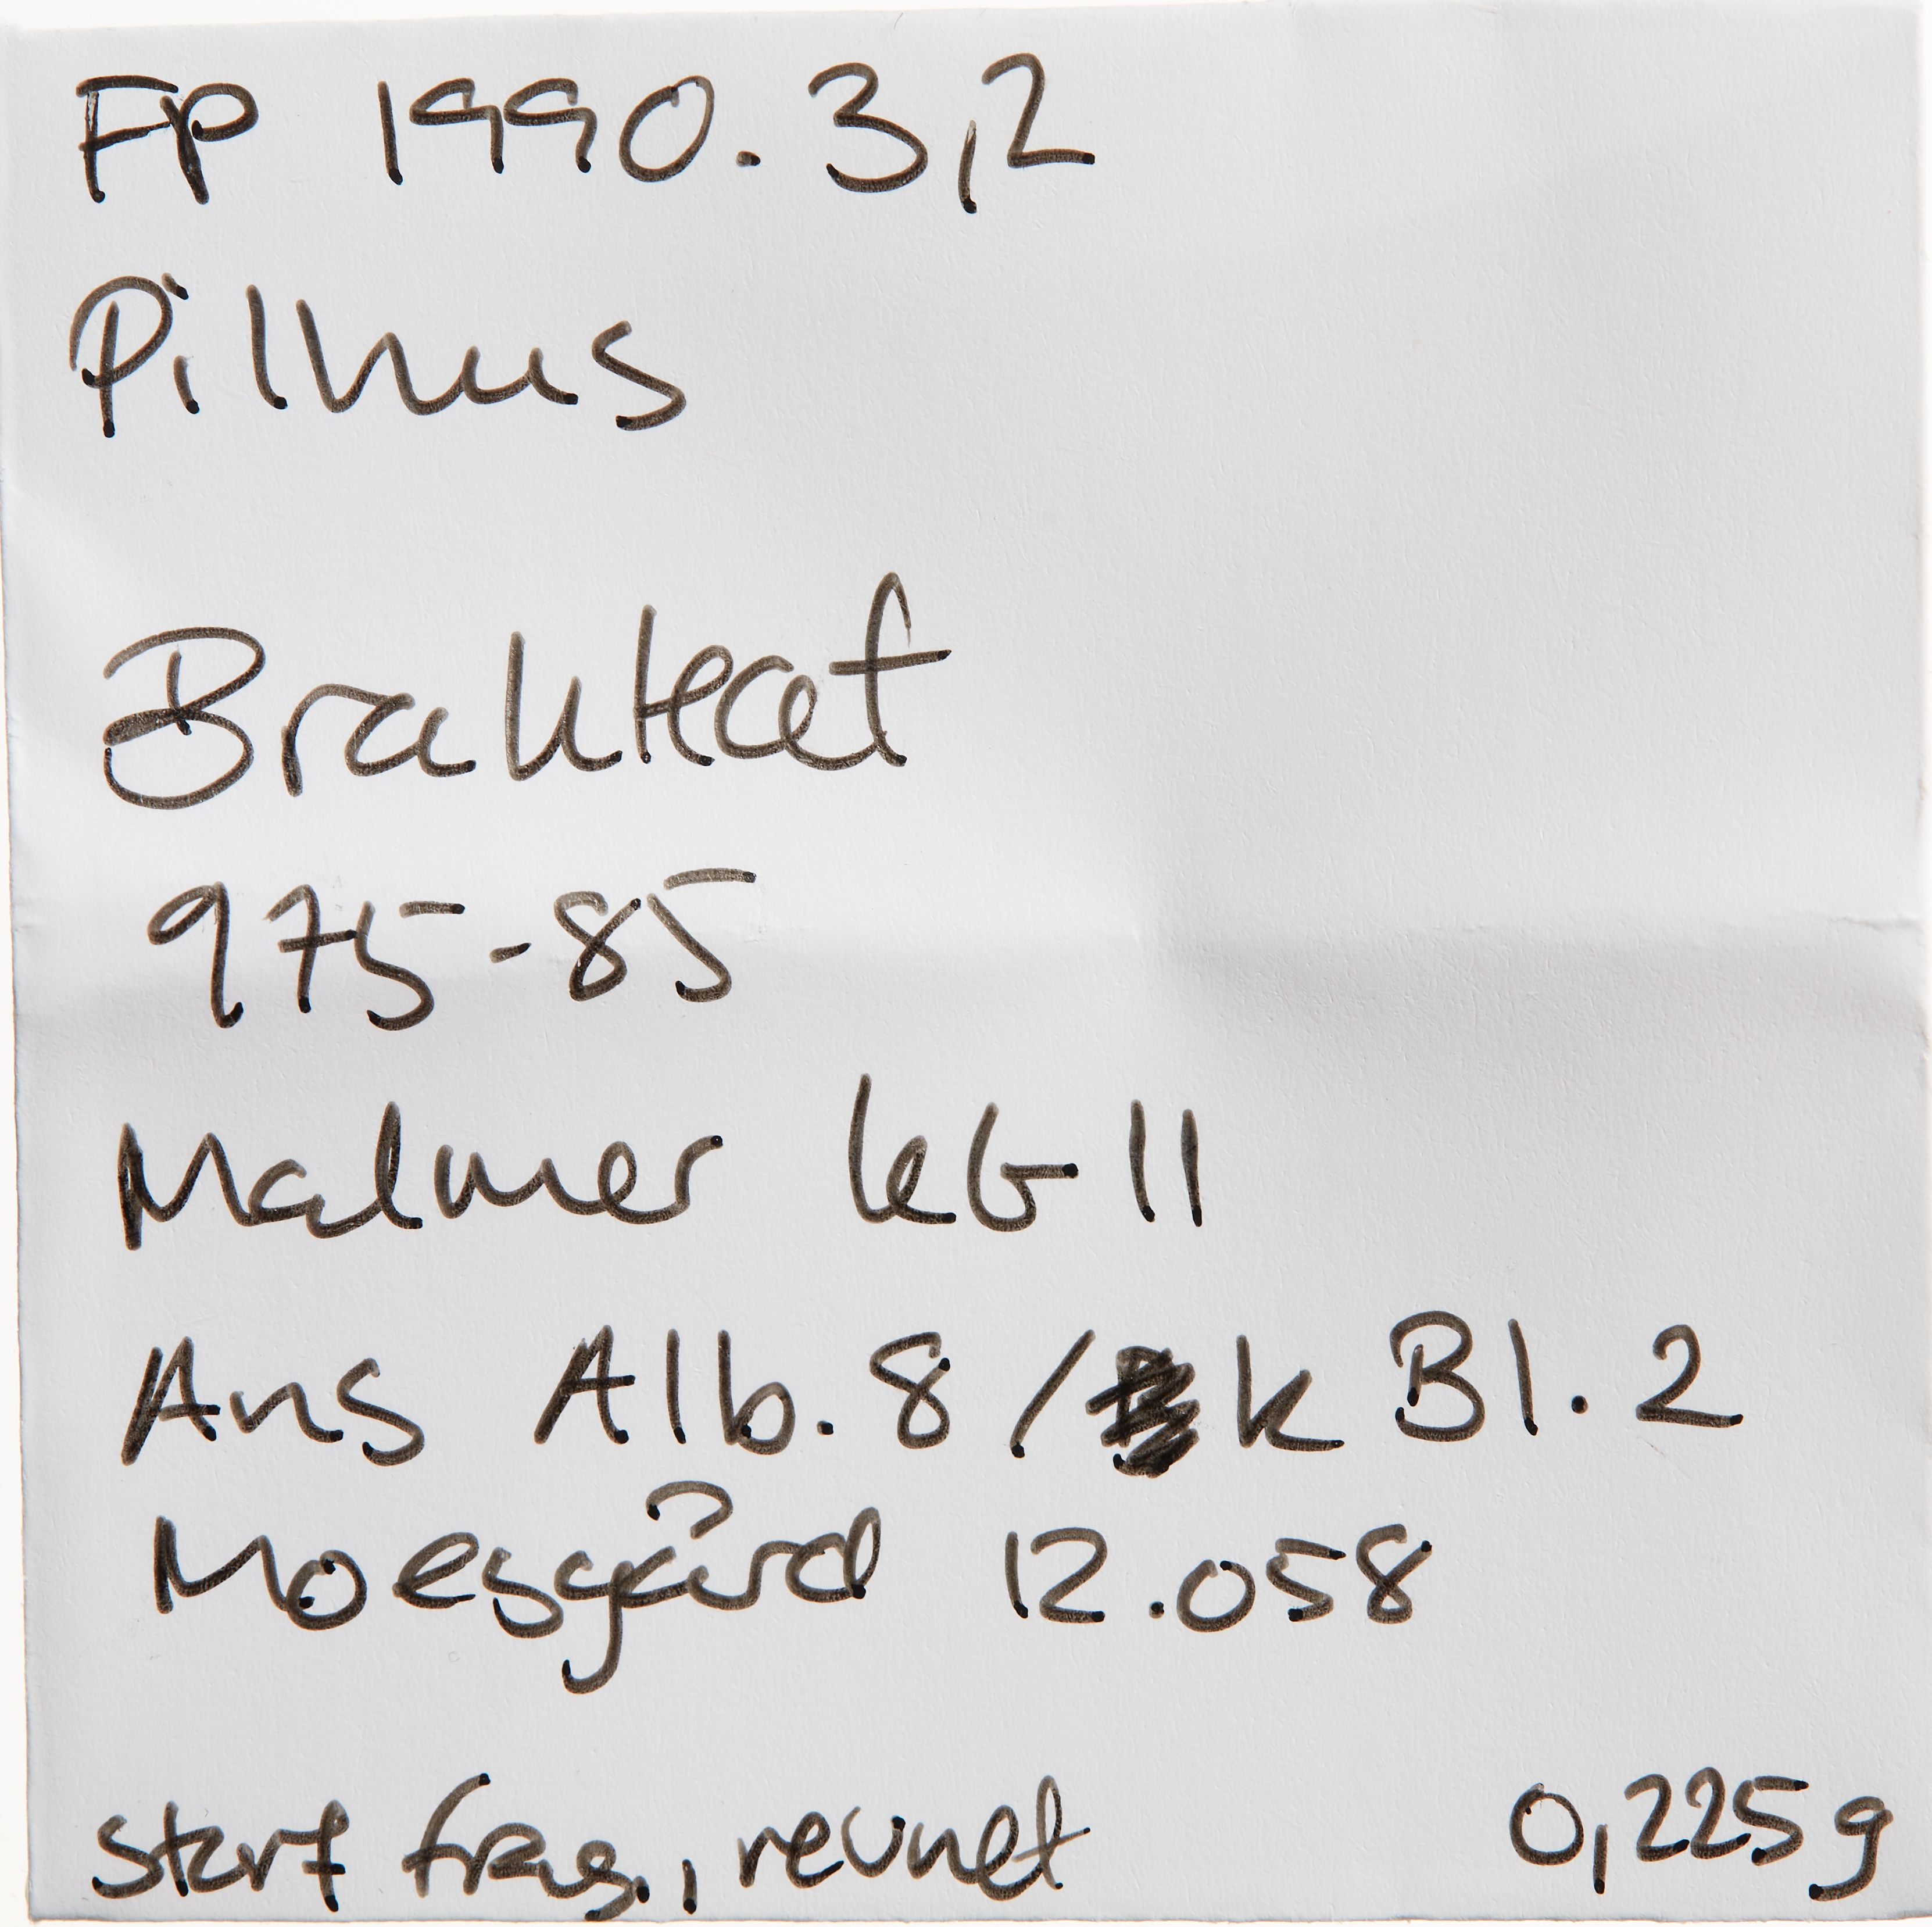 FP 1990.3,2
Pilhus
Brakteat
975-85
Malmer kG 11
Ans Alb. 8 / k Bl. 2
Moesgård 12.058
stært frag., revnet 0,225g